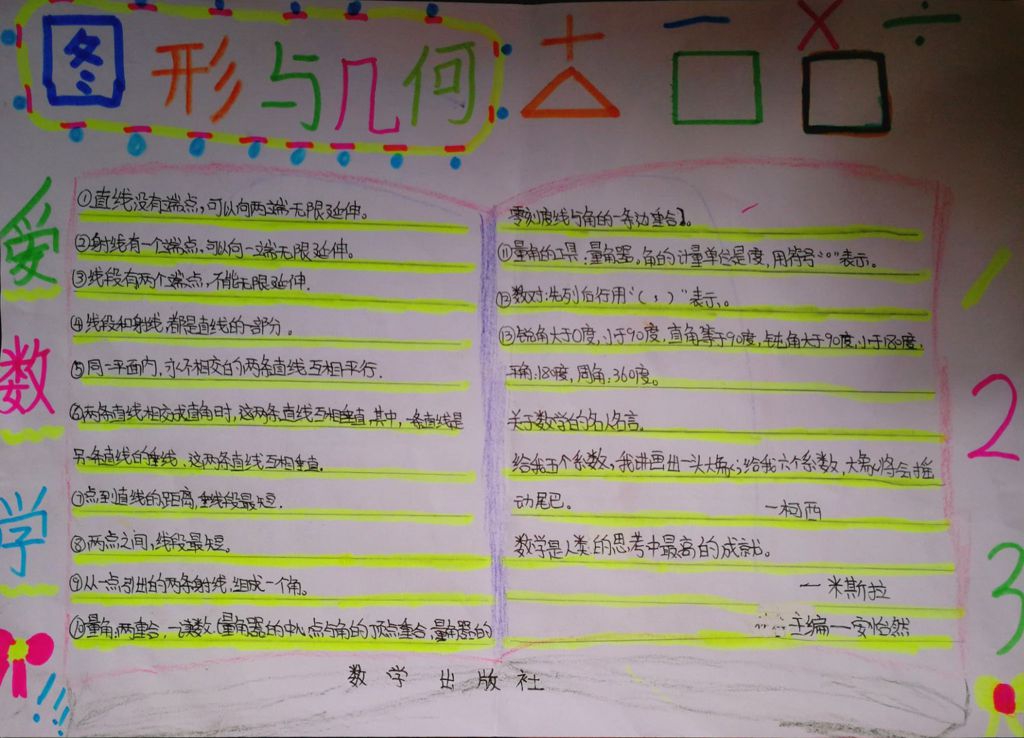 图形与几何 + − × ÷
爱数学
①直线没有端点,可以向两端无限延伸。
②射线有一个端点,可以向一端无限延伸。
③线段有两个端点,不能无限延伸.
④线段和射线,都是直线的一部分。
⑤同一平面内,永不相交的两条直线互相平行.
⑥两条直线相交成直角时,这两条直线互相垂直,其中,一条直线是
另一条直线的垂线、这两条直线互相垂直.
⑦点到直线的距离,垂线段最短.
⑧两点之间,线段最短。
⑨从一点引出的两条射线,组成一个角。
⑩量角:两重合,一读数(量角器的中心点与角的顶点重合,量角器的
零刻度线与角的一条边重合)。
⑪量角的工具:量角器,角的计量单位是度,用符号“°”表示。
⑫数对:先列后行用“( , )”表示。
⑬锐角大于0度,小于90度,直角等于90度,钝角大于90度,小于180度,
平角:180度,周角:360度。
关于数学的名人名言。
给我五个系数,我讲画出一头大象;给我六个系数,大象将会摇
动尾巴。 一柯西
数学是人类的思考中最高的成就。
一米斯拉
主编一安怡然
数学出版社
1
2
3
!!